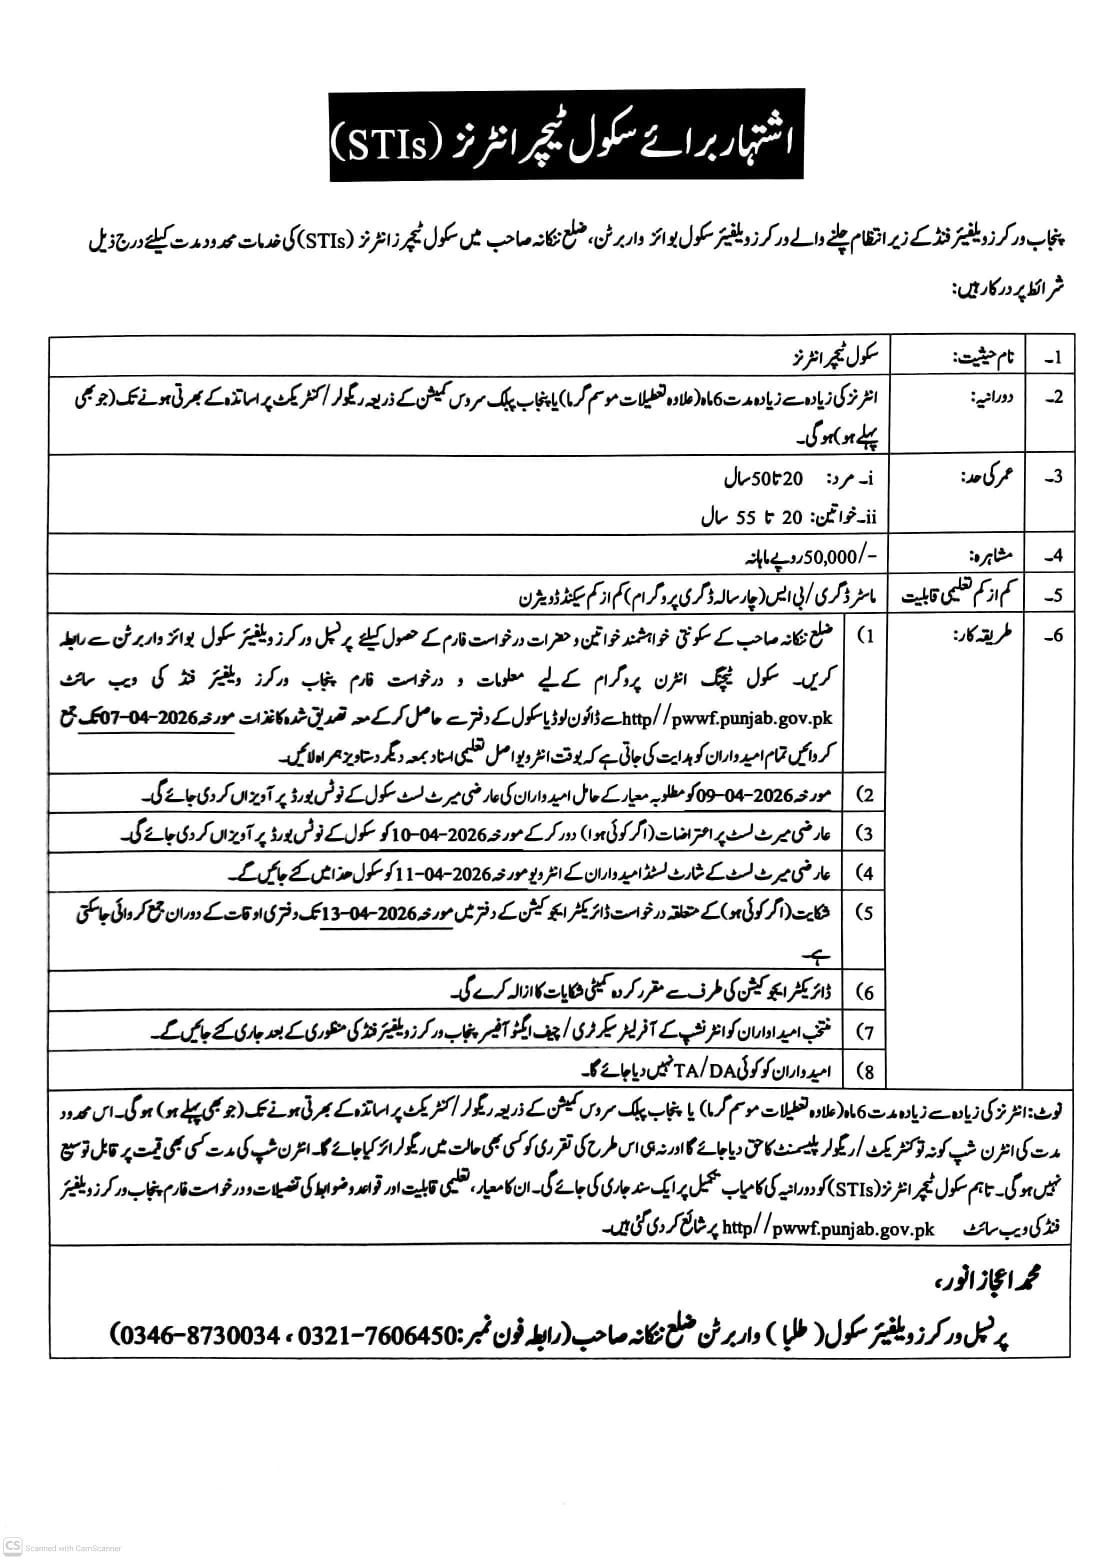 اشتہار برائے سکول ٹیچر انٹرنز (STIs)
پنجاب ورکرز ویلفیئر فنڈ کے زیر انتظام چلنے والے ورکرز ویلفیئر سکول بوائز واربرٹن، ضلع ننکانہ صاحب میں سکول ٹیچرز انٹرنز (STIs) کی خدمات محدود مدت کیلئے درج ذیل
شرائط پر درکار ہیں:
1۔ نام حیثیت: سکول ٹیچر انٹرنز
2۔ دورانیہ: انٹرنز کی زیادہ سے زیادہ مدت 6 ماہ (علاوہ تعطیلات موسم گرما) یا پنجاب پبلک سروس کمیشن کے ذریعہ ریگولر/کنٹریکٹ پر اساتذہ کے بھرتی ہونے تک (جو بھی
پہلے ہو) ہوگی۔
3۔ عمر کی حد: i۔ مرد: 20 تا 50 سال
ii۔ خواتین: 20 تا 55 سال
4۔ مشاہرہ: 50,000/- روپے ماہانہ
5۔ کم از کم تعلیمی قابلیت ماسٹر ڈگری/بی ایس (چار سالہ ڈگری پروگرام) کم از کم سیکنڈ ڈویژن
6۔ طریقہ کار: 1) ضلع ننکانہ صاحب کے سکونتی خواہشمند خواتین و حضرات درخواست فارم کے حصول کیلئے پرنسپل ورکرز ویلفیئر سکول بوائز واربرٹن سے رابطہ
کریں۔ سکول ٹیچنگ انٹرن پروگرام کے لیے معلومات و درخواست فارم پنجاب ورکرز ویلفیئر فنڈ کی ویب سائٹ
http//pwwf.punjab.gov.pk سے ڈائون لوڈ یا سکول کے دفتر سے حاصل کر کے معہ تصدیق شدہ کاغذات مورخہ 07-04-2026 تک جمع
کروائیں تمام امیدواران کو ہدایت کی جاتی ہے کہ بوقت انٹرویو اصل تعلیمی اسناد بمعہ دیگر دستاویز ہمراہ لائیں۔
2) مورخہ 09-04-2026 کو مطلوبہ معیار کے حامل امیدواران کی عارضی میرٹ لسٹ سکول کے نوٹس بورڈ پر آویزاں کر دی جائے گی۔
3) عارضی میرٹ لسٹ پر اعتراضات (اگر کوئی ہوا) دور کر کے مورخہ 10-04-2026 کو سکول کے نوٹس بورڈ پر آویزاں کر دی جائے گی۔
4) عارضی میرٹ لسٹ کے شارٹ لسٹڈ امیدواران کے انٹرویو مورخہ 11-04-2026 کو سکول ھذا میں کئے جائیں گے۔
5) شکایت (اگر کوئی ہو) کے متعلقہ درخواست ڈائریکٹر ایجوکیشن کے دفتر میں مورخہ 13-04-2026 تک دفتری اوقات کے دوران جمع کروائی جا سکتی
ہے۔
6) ڈائریکٹر ایجوکیشن کی طرف سے مقرر کردہ کمیٹی شکایات کا ازالہ کرے گی۔
7) منتخب امیداواران کو انٹرنشپ کے آفر لیٹر سیکرٹری/چیف ایگزیکٹو آفیسر پنجاب ورکرز ویلفیئر فنڈ کی منظوری کے بعد جاری کئے جائیں گے۔
8) امیدواران کو کوئی TA/DA نہیں دیا جائے گا۔
نوٹ: انٹرنز کی زیادہ سے زیادہ مدت 6 ماہ (علاوہ تعطیلات موسم گرما) یا پنجاب پبلک سروس کمیشن کے ذریعہ ریگولر/کنٹریکٹ پر اساتذہ کے بھرتی ہونے تک (جو بھی پہلے ہو) ہوگی۔ اس محدود
مدت کی انٹرن شپ کو نہ تو کنٹریکٹ/ریگولر پلیسمنٹ کا حق دیا جائے گا اور نہ ہی اس طرح کی تقرری کو کسی بھی حالت میں ریگولرائز کیا جائے گا۔ انٹرن شپ کی مدت کسی بھی قیمت پر قابل توسیع
نہیں ہوگی۔ تاہم سکول ٹیچر انٹرنز (STIs) کو دورانیہ کی کامیاب تکمیل پر ایک سند جاری کی جائے گی۔ ان کا معیار، تعلیمی قابلیت اور قواعد و ضوابط کی تفصیلات و درخواست فارم پنجاب ورکرز ویلفیئر
فنڈ کی ویب سائٹ http//pwwf.punjab.gov.pk پر شائع کر دی گئی ہیں۔
محمد اعجاز انور،
پرنسپل ورکرز ویلفیئر سکول (طلبا) واربرٹن ضلع ننکانہ صاحب (رابطہ فون نمبر: 0321-7606450 ، 0346-8730034)
CS Scanned with CamScanner